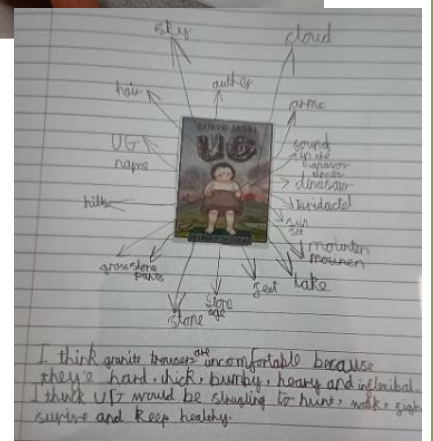 sky
cloud
hair
auther
arms
UG
name
sound
in the
dinasour
teridactel
sun
set
hills
mountin
grass
stone
pants
feet
lake
stone
stone
age
RAYMOND BRIGGS
UG
I think granite trousers are uncomfortable because
they'e hard, thick, bumpy, heavy and inflexibal.
I think UG would be strugling to hunt, walk,
survive and keep healthy.